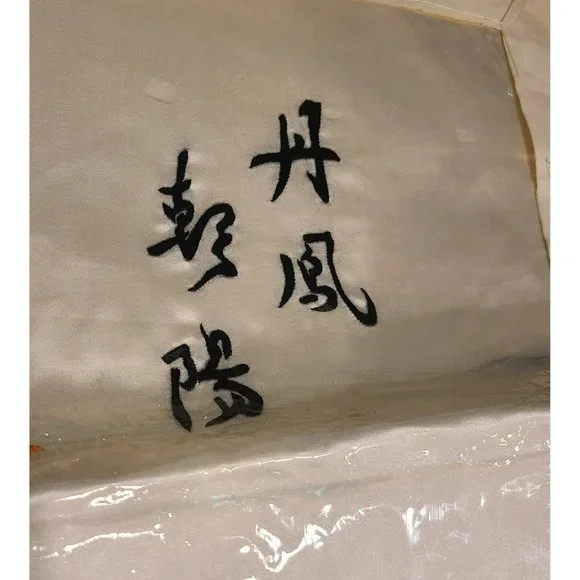 丹鳳
朝陽